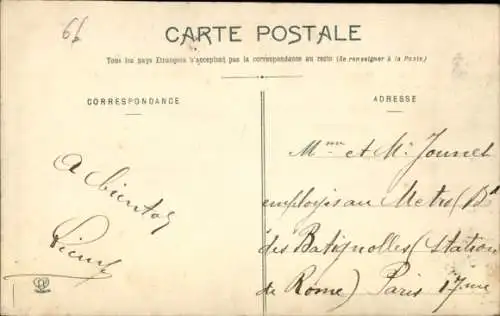 66
CARTE POSTALE
Tous les pays Etrangers n'acceptent pas la correspondance au recto (Se renseigner à la Poste)
CORRESPONDANCE
ADRESSE
A bientot
Mme et Mr Jounel
employés au Metro (Bd
des Batignolles (Station
de Rome) Paris 17me